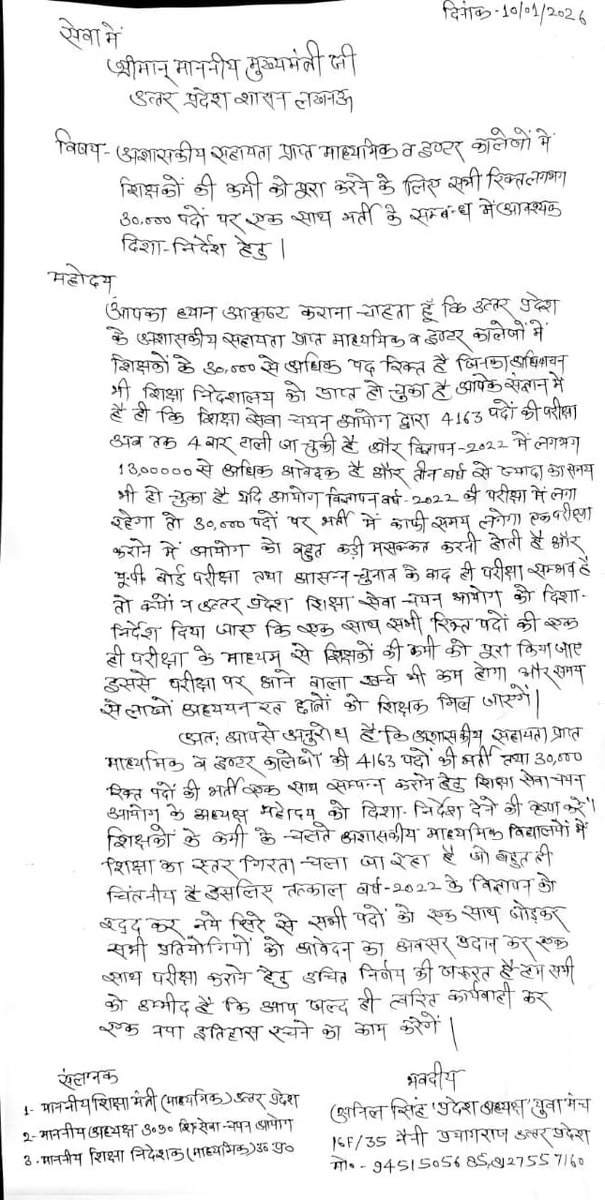 दिनांक-10/01/2026
सेवा में
श्रीमान् माननीय मुख्यमंत्री जी
उत्तर प्रदेश शासन लखनऊ
विषय- अशासकीय सहायता प्राप्त माध्यमिक व इण्टर कालेजों में
शिक्षकों की कमी को पूरा करने के लिए सभी रिक्त लगभग
30,000 पदों पर एक साथ भर्ती के सम्बन्ध में आवश्यक
दिशा-निर्देश हेतु।
महोदय
आपका ध्यान आकृष्ट कराना चाहता हूँ कि उत्तर प्रदेश
के अशासकीय सहायता प्राप्त माध्यमिक व इण्टर कालेजों में
शिक्षकों के 30,000 से अधिक पद रिक्त है जिनका अधियाचन
भी शिक्षा निदेशालय को प्राप्त हो चुका है आपके संज्ञान में
है ही कि शिक्षा सेवा चयन आयोग द्वारा 4163 पदों की परीक्षा
अब तक 4 बार टाली जा चुकी है और विज्ञापन-2022 में लगभग
13,00000 से अधिक आवेदक है और तीन वर्ष से ज्यादा का समय
भी हो चुका है यदि आयोग विज्ञापन वर्ष-2022 की परीक्षा में लगा
रहेगा तो 30,000 पदों पर भर्ती में काफी समय लगेगा एक परीक्षा
कराने में आयोग को बहुत कड़ी मसक्कत करनी होती है और
यू.पी. बोर्ड परीक्षा तथा आसन्न चुनाव के बाद ही परीक्षा सम्भव है
तो क्यों न उत्तर प्रदेश शिक्षा सेवा चयन आयोग को दिशा-
निर्देश दिया जाए कि एक साथ सभी रिक्त पदों की एक
ही परीक्षा के माध्यम से शिक्षकों की कमी को पूरा किया जाए
इससे परीक्षा पर आने वाला खर्च भी कम होगा और समय
से लाखों अध्ययन रत छात्रों को शिक्षक मिल जाएगें।
अत: आपसे अनुरोध है कि अशासकीय सहायता प्राप्त
माध्यमिक व इण्टर कालेजों की 4163 पदों की भर्ती तथा 30,000
रिक्त पदों की भर्ती एक साथ सम्पन्न कराने हेतु शिक्षा सेवा चयन
आयोग के अध्यक्ष महोदय को दिशा-निर्देश देने की कृपा करें।
शिक्षकों के कमी के चलते अशासकीय माध्यमिक विद्यालयों में
शिक्षा का स्तर गिरता चला जा रहा है जो बहुत ही
चिंतनीय है इसलिए तत्काल वर्ष-2022 के विज्ञापन को
रद्द कर नये सिरे से सभी पदों को एक साथ जोड़कर
सभी प्रतियोगियों को आवेदन का अवसर प्रदान कर एक
साथ परीक्षा कराने हेतु उचित निर्णय की जरूरत है हम सभी
को उम्मीद है कि आप जल्द ही त्वरित कार्यवाही कर
एक नया इतिहास रचने का काम करेगें।
संलग्नक
1- माननीय शिक्षा मंत्री (माध्यमिक) उत्तर प्रदेश
2- माननीय अध्यक्ष उ०प्र० शि० सेवा-चयन आयोग
3- माननीय शिक्षा निदेशक (माध्यमिक) उ० प्र०
भवदीय
(अनिल सिंह 'प्रदेश अध्यक्ष' युवा मंच
16F/35 नैनी प्रयागराज उत्तर प्रदेश
मो०-9451505685,